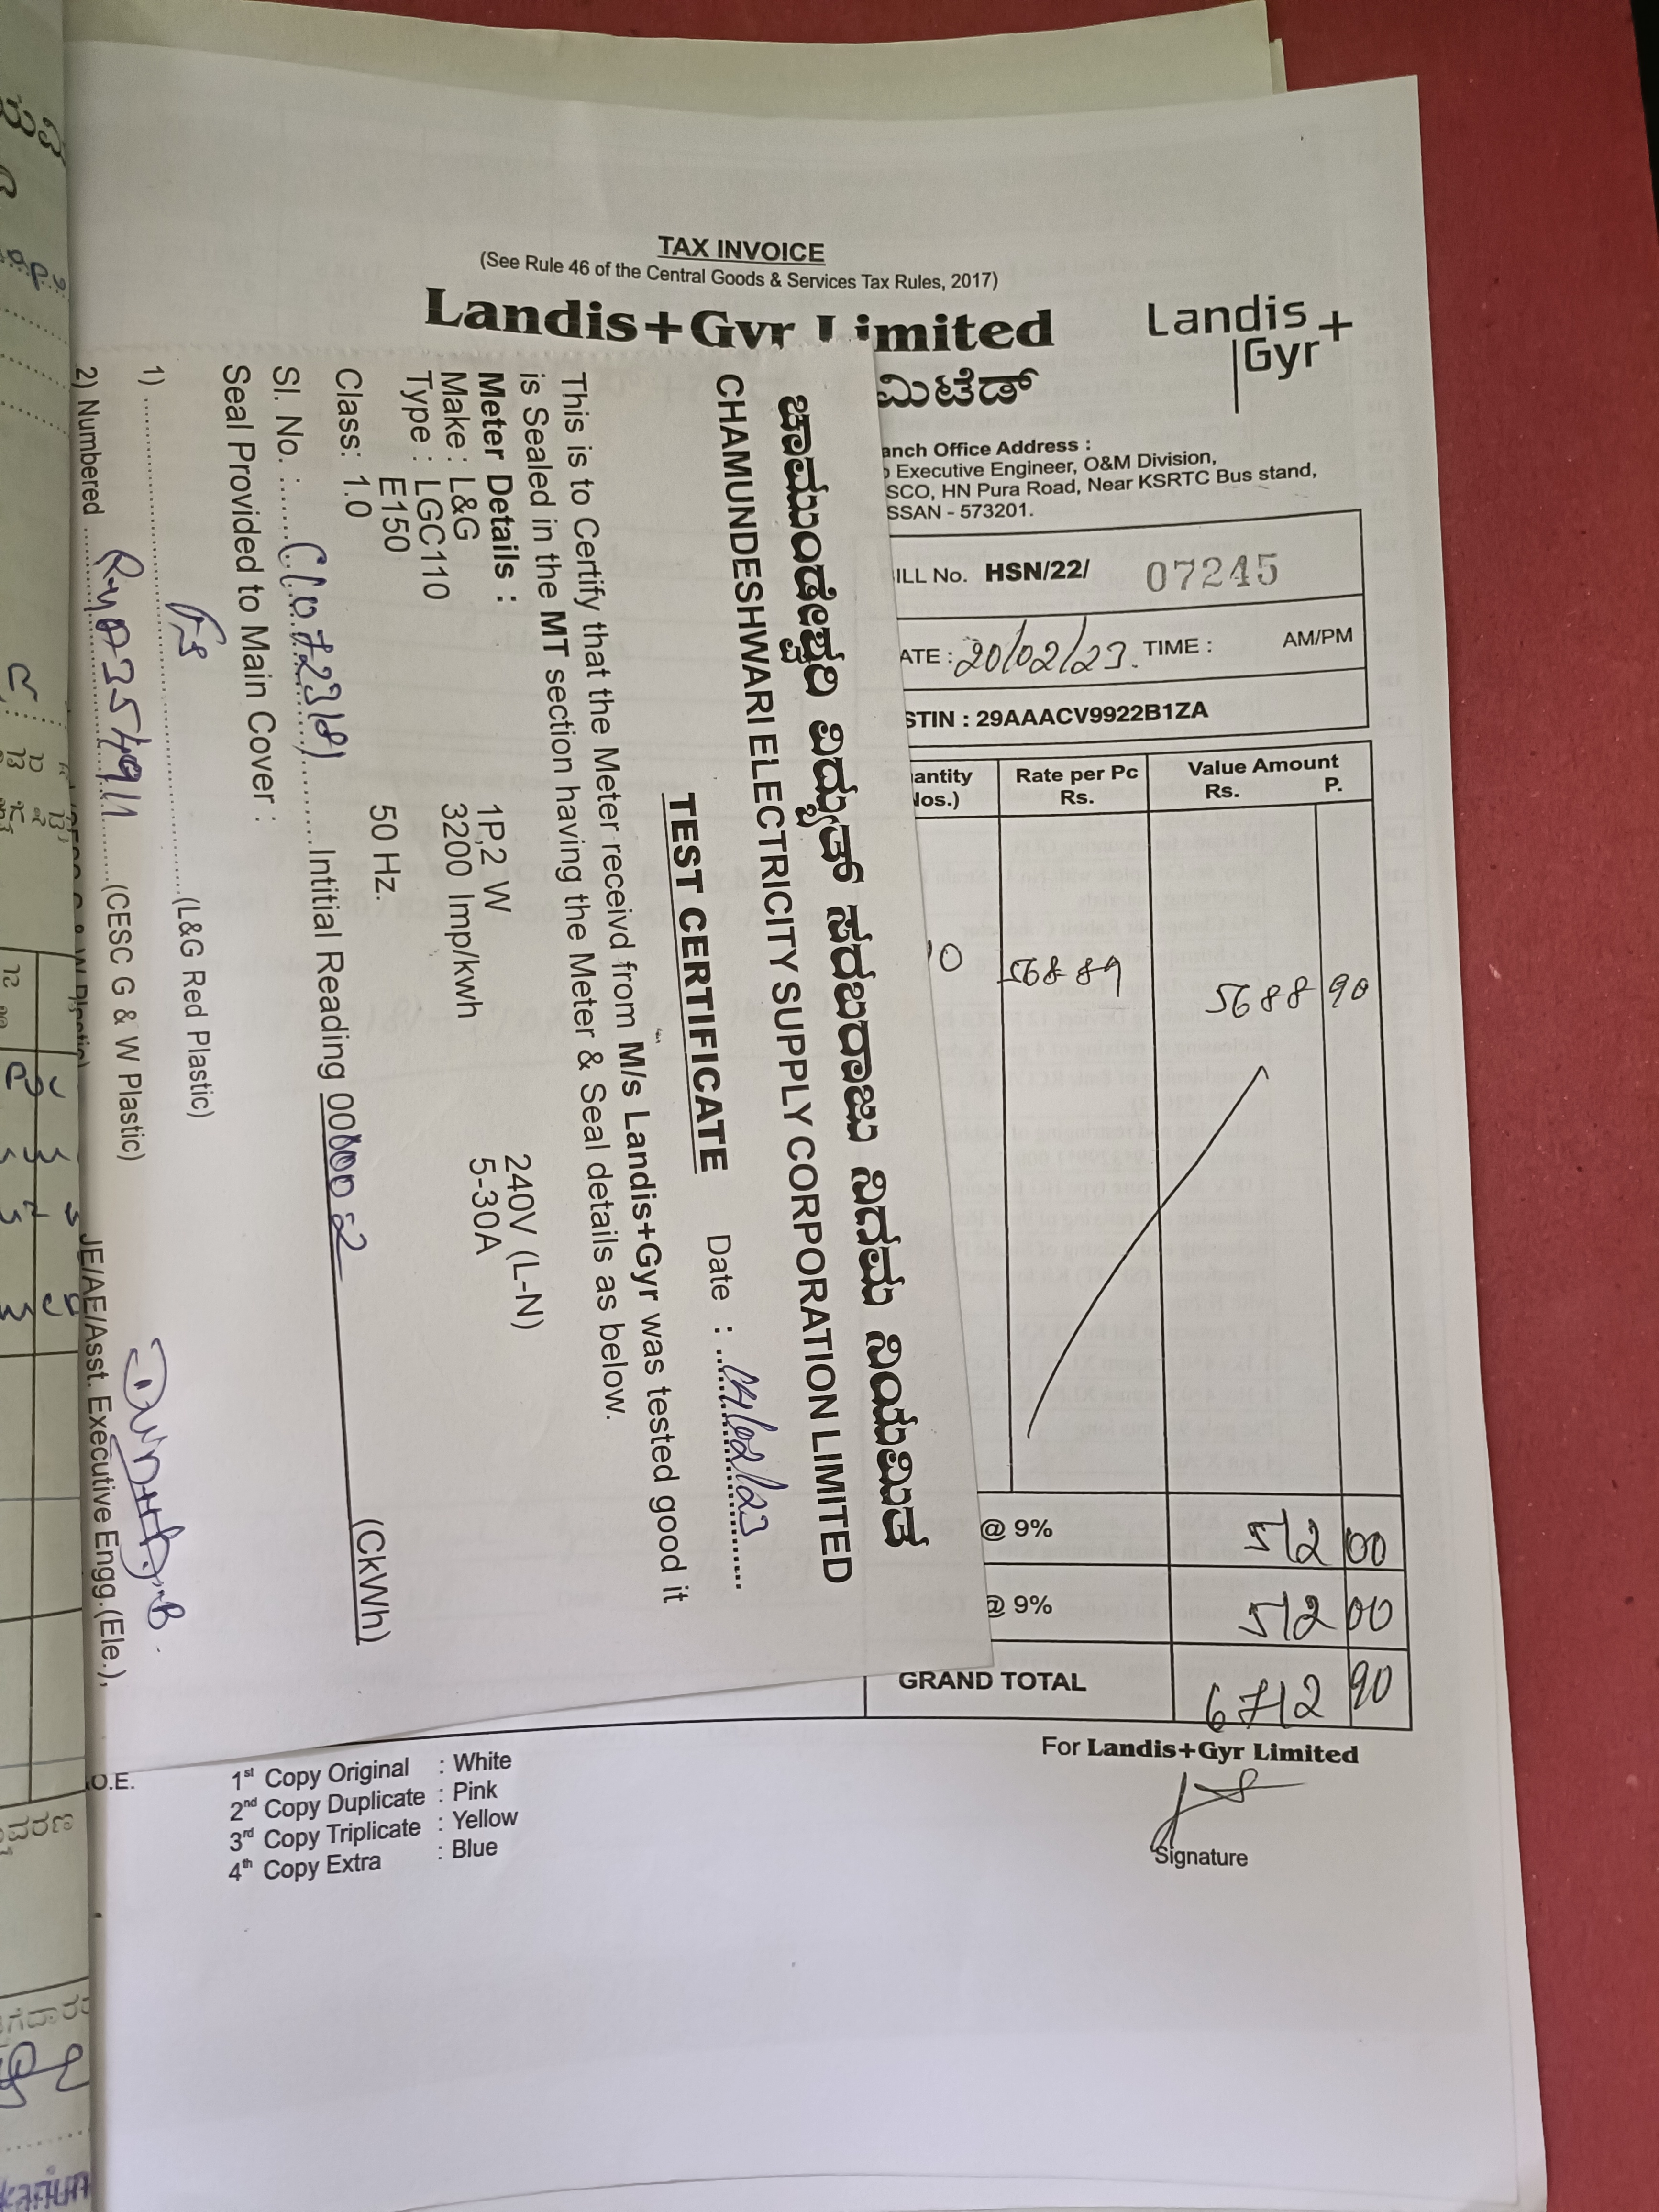 TAX INVOICE
(See Rule 46 of the Central Goods & Services Tax Rules, 2017)
Landis+Gyr Limited
Landis+
Gyr
ಮಿಟೆಡ್
anch Office Address :
Executive Engineer, O&M Division,
SCO, HN Pura Road, Near KSRTC Bus stand,
SSAN - 573201.
ILL No. HSN/22/ 07245
ATE : 20/02/23. TIME : AM/PM
STIN : 29AAACV9922B1ZA
antity Rate per Pc Value Amount
Nos.) Rs. Rs. P.
10 568 89 5688 90
@ 9% 512 00
@ 9% 512 00
GRAND TOTAL 6712 90
For Landis+Gyr Limited
Signature
O.E.
1st Copy Original : White
2nd Copy Duplicate : Pink
3rd Copy Triplicate : Yellow
4th Copy Extra : Blue
ಚಾಮುಂಡೇಶ್ವರಿ ವಿದ್ಯುತ್ ಸರಬರಾಜು ನಿಗಮ ನಿಯಮಿತ
CHAMUNDESHWARI ELECTRICITY SUPPLY CORPORATION LIMITED
TEST CERTIFICATE Date : 14/02/23
This is to Certify that the Meter receivd from M/s Landis+Gyr was tested good it
is Sealed in the MT section having the Meter & Seal details as below.
Meter Details :
Make : L&G 1P,2 W 240V (L-N)
Type : LGC110 3200 Imp/kwh 5-30A
E150
Class: 1.0 50 Hz.
Sl. No. : C1072318) Intitial Reading 000002 (CkWh)
Seal Provided to Main Cover :
1) (L&G Red Plastic)
2) Numbered Ry0354911 (CESC G & W Plastic)
JE/AE/Asst. Executive Engg.(Ele.),